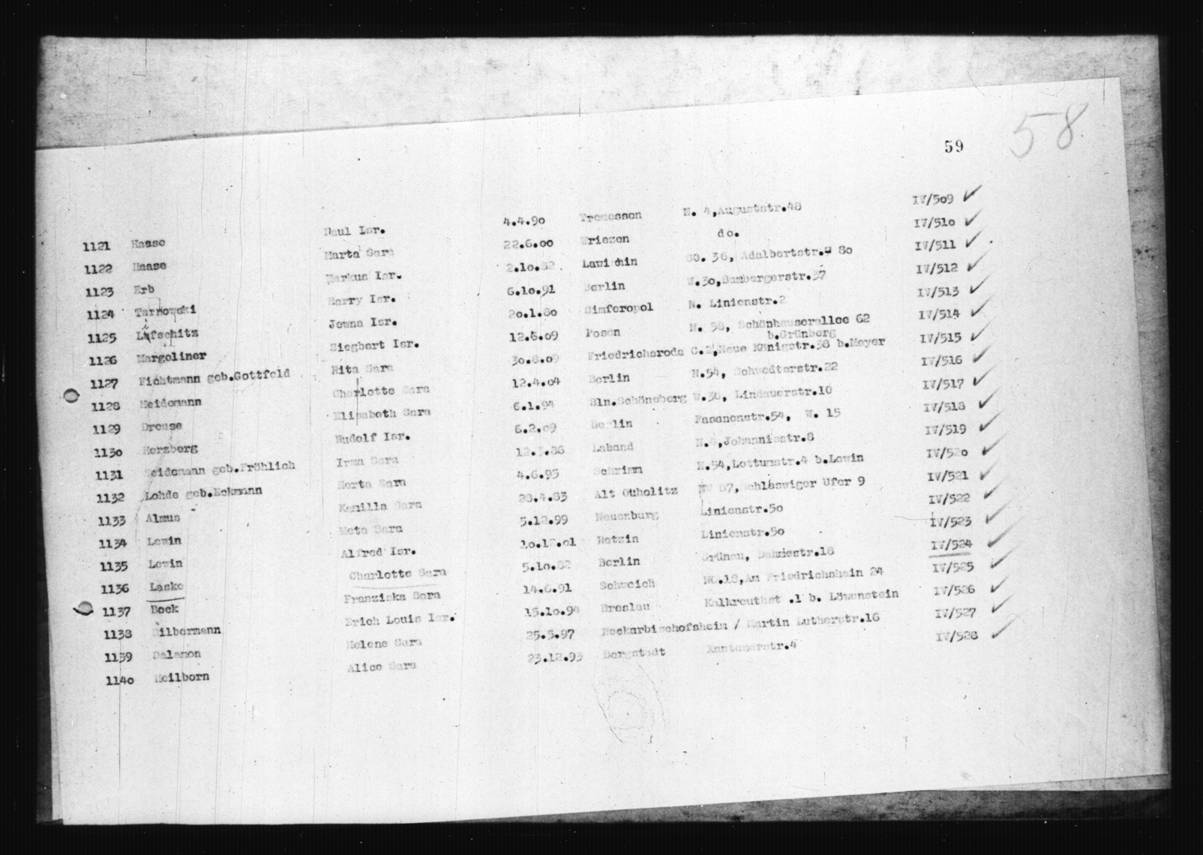 58
59
1121 Haase Paul Isr. 4.4.90 Tremessen N. 4,Auguststr.48 IV/509
1122 Haase Marta Sara 22.6.00 Wriezen do. IV/510
1123 Erb Markus Isr. 2.10.82 SO. 36, Adalbertstr. 80 IV/511
1124 Tarnowski Harry Isr. 6.10.91 Berlin W.30,Bambergerstr.37 IV/512
1125 Lifschitz Jonna Isr. 20.1.80 Simferopol N. Linienstr.2 IV/513
1126 Margoliner Siegbert Isr. 12.6.09 Posen N. 58, Schönhauserallee 62 IV/514
b.Grünberg
1127 Fichtmann geb.Gottfeld Rita Sara 30.8.09 Friedrichsroda C.2,Neue Königstr.38 b.Meyer IV/515
1128 Heidemann Charlotte Sara 12.4.04 Berlin N.54, Schwedterstr.22 IV/516
1129 Dreuse Elisabeth Sara 6.1.94 Bln.Schöneberg W.30, Lindauerstr.10 IV/517
1130 Herzberg Rudolf Isr. 6.2.09 Berlin Fasanenstr.54, W. 15 IV/518
1131 Heidemann geb.Fröhlich Irma Sara Laband N.4,Johannisstr.8 IV/519
1132 Lohde geb.Eckmann Herta Sara 4.6.95 Schrimm N.54,Lottumstr.4 b.Lewin IV/520
1133 Almus Kamilla Sara 28.4.83 Alt NW 87, Schleswiger Ufer 9 IV/521
1134 Lewin Meta Sara 5.12.99 Neuenburg Linienstr.50 IV/522
1135 Lewin Alfred Isr. 10.12.01 Linienstr.50 IV/523
1136 Laske Charlotte Sara 5.10.82 Berlin Grünau, IV/524
1137 Bock Franziska Sara 14.6.91 Schweich NO.18,Am Friedrichshain 24 IV/525
1138 Silbermann Erich Louis Isr. 15.10.94 Breslau Kalkreuthst .1 b. Löwenstein IV/526
1139 Salomon Helene Sara 25.5.97 Neckarbischofsheim / Martin Lutherstr.16 IV/527
1140 Heilborn Alice Sara 23.12.93 Bergstadt Kantonerstr.4 IV/528